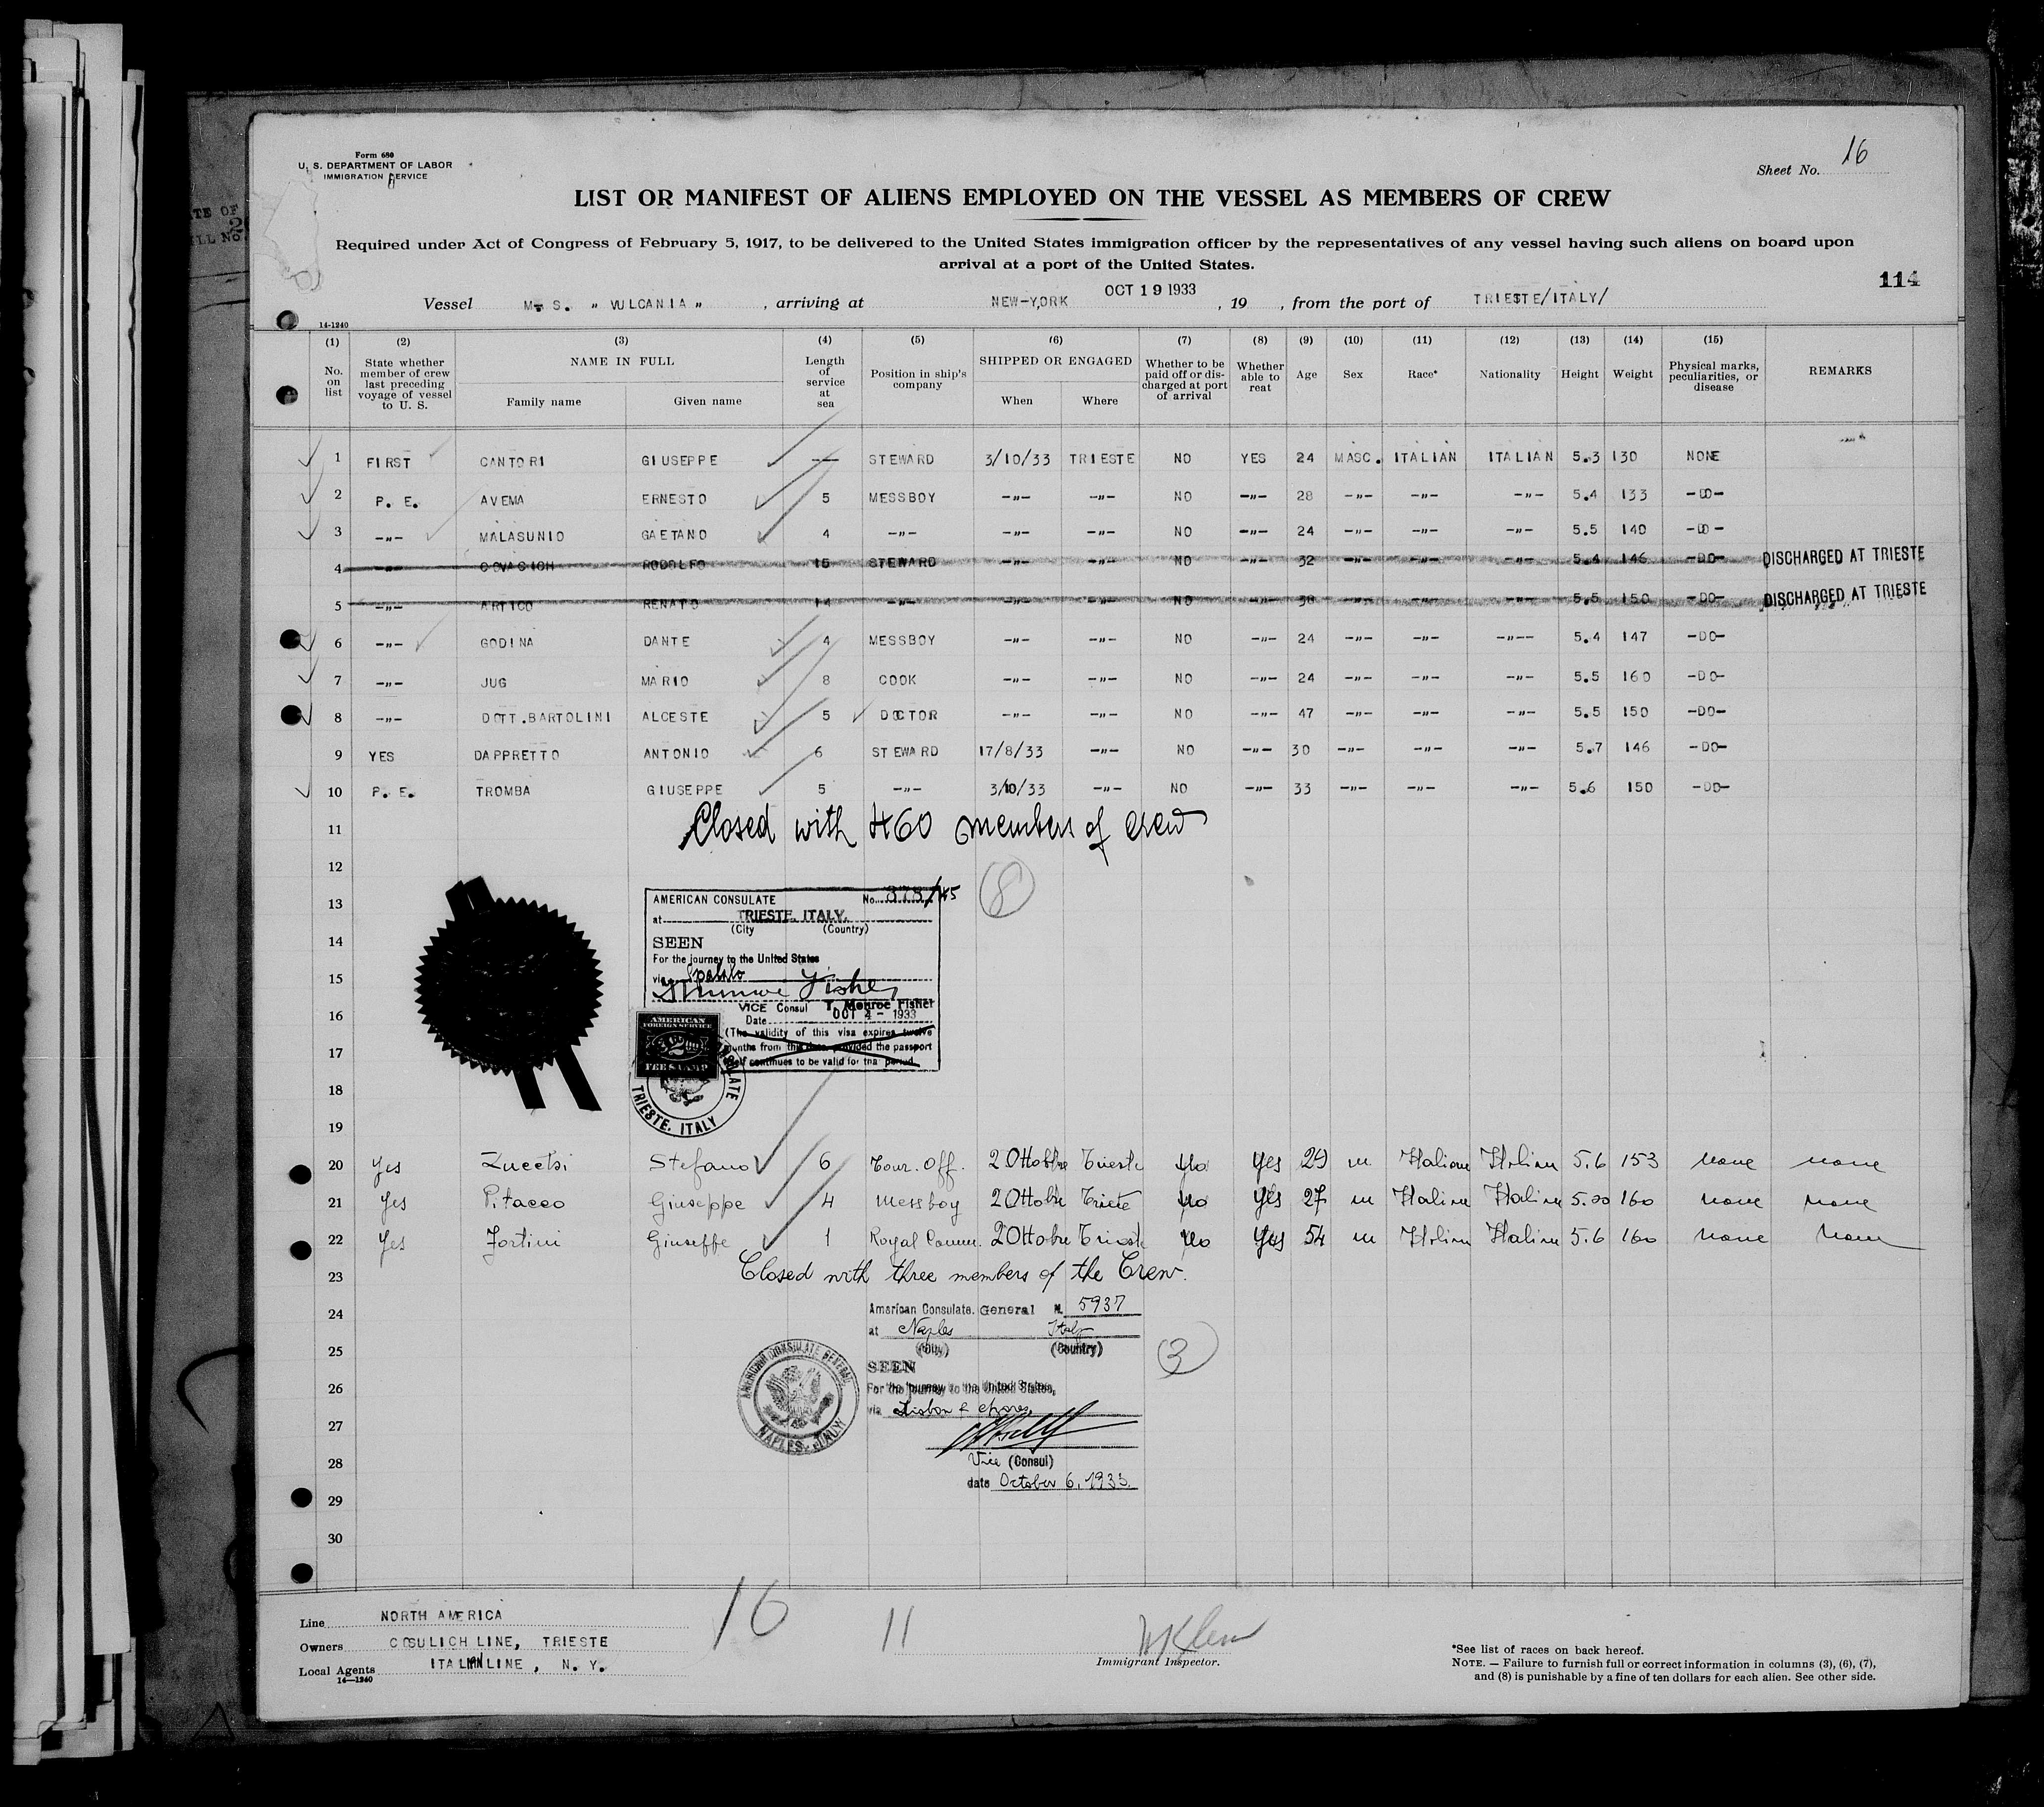 Form 680
U. S. DEPARTMENT OF LABOR
IMMIGRATION SERVICE
Sheet No. 16
LIST OR MANIFEST OF ALIENS EMPLOYED ON THE VESSEL AS MEMBERS OF CREW
Required under Act of Congress of February 5, 1917, to be delivered to the United States immigration officer by the representatives of any vessel having such aliens on board upon
arrival at a port of the United States.
114
Vessel M. S. " VULCANIA " , arriving at NEW-YORK OCT 19 1933 , 19 , from the port of TRIESTE/ITALY/
14-1240
(1) (2) (3) (4) (5) (6) (7) (8) (9) (10) (11) (12) (13) (14) (15)
No. on list State whether member of crew last preceding voyage of vessel to U. S. NAME IN FULL Family name Given name Length of service at sea Position in ship's company SHIPPED OR ENGAGED When Where Whether to be paid off or discharged at port of arrival Whether able to reat Age Sex Race* Nationality Height Weight Physical marks, peculiarities, or disease REMARKS
1 FIRST CANTORI GIUSEPPE — STEWARD 3/10/33 TRIESTE NO YES 24 MASC. ITALIAN ITALIAN 5.3 130 NONE
2 P. E. AVEMA ERNESTO 5 MESSBOY -"- -"- NO -"- 28 -"- -"- -"- 5.4 133 -DO-
3 -"- MALASUNIO GAETANO 4 -"- -"- -"- NO -"- 24 -"- -"- -"- 5.5 140 -DO-
4 -"- COVACICH RODOLFO 15 STEWARD -"- -"- NO -"- 32 -"- -"- -"- 5.4 146 -DO- DISCHARGED AT TRIESTE
5 -"- ARTICO RENATO 14 -"- -"- -"- NO -"- 38 -"- -"- -"- 5.5 150 -DO- DISCHARGED AT TRIESTE
6 -"- GODINA DANTE 4 MESSBOY -"- -"- NO -"- 24 -"- -"- -"-- 5.4 147 -DO-
7 -"- JUG MARIO 8 COOK -"- -"- NO -"- 24 -"- -"- -"- 5.5 160 -DO-
8 -"- DOTT.BARTOLINI ALCESTE 5 DOCTOR -"- -"- NO -"- 47 -"- -"- -"- 5.5 150 -DO-
9 YES DAPPRETTO ANTONIO 6 STEWARD 17/8/33 -"- NO -"- 30 -"- -"- -"- 5.7 146 -DO-
10 P. E. TROMBA GIUSEPPE 5 -"- 3/10/33 -"- NO -"- 33 -"- -"- -"- 5.6 150 -DO-
11
Closed with 460 members of crew
12
13
AMERICAN CONSULATE No. 378/45
8
at TRIESTE, ITALY.
(City (Country)
14
SEEN
For the journey to the United States
15
via Spalato
16
VICE Consul T. Monroe Fisher
Date OCT 4 - 1933
(The validity of this visa expires twelve
17
months from this date, provided the passport
itself continues to be valid for that period.
AMERICAN
FOREIGN SERVICE
2
FEE STAMP
18
TRIESTE, ITALY
19
20 Yes Stefano 6 Tour. Off. 2 Ottobre Trieste No Yes 29 m Italian Italian 5.6 153 none none
21 Yes Pitacco Giuseppe 4 Messboy 2 Ottobre Trieste No Yes 27 m Italian Italian 160 none none
22 Yes Fortini Giuseppe 1 Royal Comm. 2 Ottobre Trieste No Yes 54 m Italian Italian 5.6 160 none none
23
Closed with three members of the Crew.
24
American Consulate. General N. 5937
at Naples Italy
(City) (Country)
25
3
SEEN
26
For the journey to the United States,
via Lisbon & Azores
27
AMERICAN CONSULATE GENERAL
NAPLES, ITALY
28
Vice (Consul)
date October 6, 1933.
29
30
Line NORTH AMERICA
Owners COSULICH LINE, TRIESTE
Local Agents ITALIAN LINE, N. Y.
14-1240
16
11
Immigrant Inspector.
*See list of races on back hereof.
NOTE. — Failure to furnish full or correct information in columns (3), (6), (7),
and (8) is punishable by a fine of ten dollars for each alien. See other side.